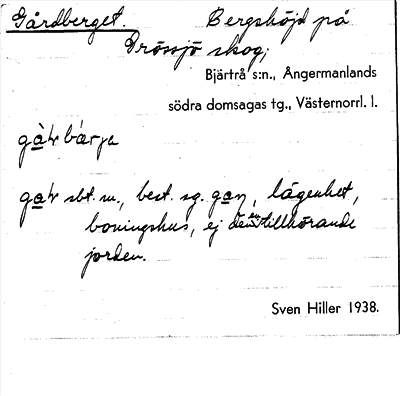 Gårdberget. Bergshöjd på
Drössjö skog,
Bjärtrå s:n., Ångermanlands
södra domsagas tg., Västernorrl. l.
gàr bærje
gar sbt. m., best. sg. gan, lägenhet,
boningshus, ej den tillhörande
jorden.
Sven Hiller 1938.